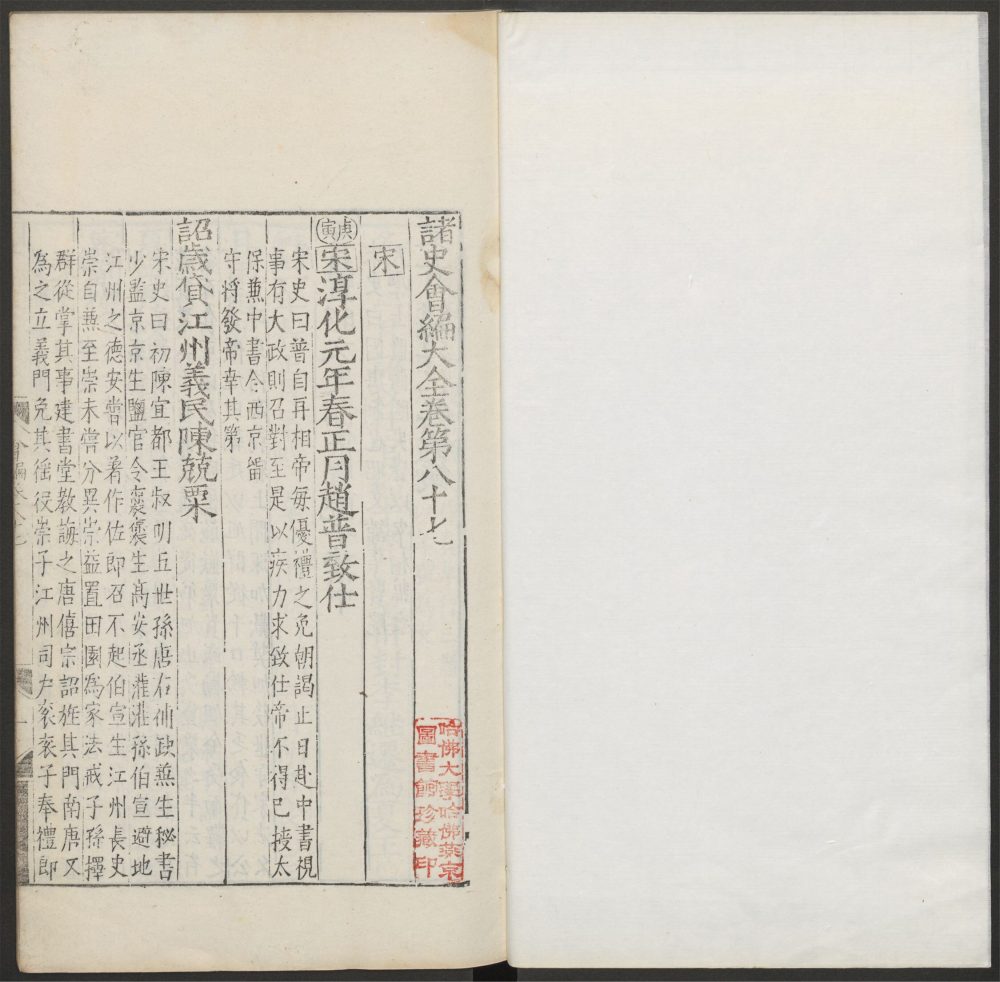 諸史會編大全卷第八十七
宋
庚寅宋淳化元年春正月趙普致仕
宋史曰普自再相帝每優禮之免朝謁止日赴中書視
事有大政則召對至是以疾力求致仕帝不得已授太
保兼中書令西京畱
守將發帝幸其第
詔歲貸江州義民陳兢粟
宋史曰初陳宜都王叔明五世孫唐右補政兼生秘書
少監京京生鹽官令褒褒生高安丞灌灌孫伯宣避地
江州之德安嘗以著作佐郎召不起伯宣生江州長史
崇自兼至崇未嘗分異崇益置田園為家法戒子孫擇
群從掌其事建書堂教誨之唐僖宗詔旌其門南唐又
為之立義門免其徭役崇子江州司户袞袞子奉禮郎
哈佛大學哈佛燕京
圖書館珍藏印